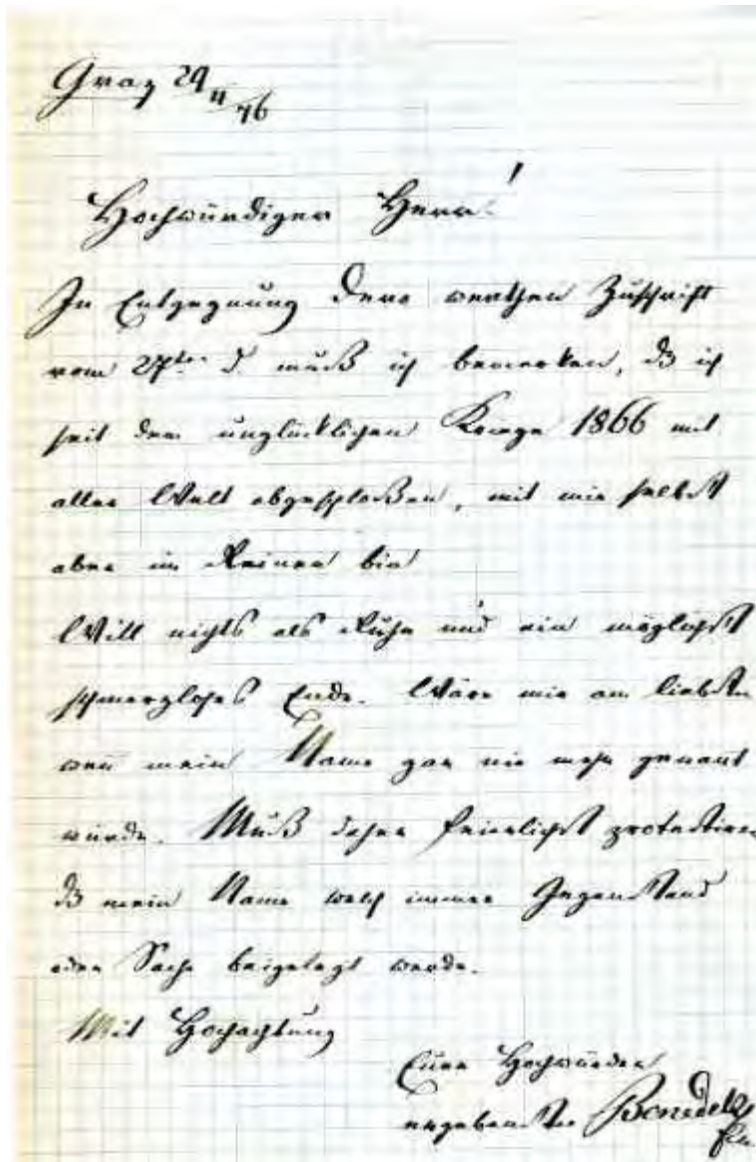 Graz 29/11 76
Hochwürdiger Herr!
In Entgegnung Dero werthen Zuschrift
vom 27ten d. muß ich bemerken, dß ich
seit dem unglücklichen Kriege 1866 mit
aller Welt abgeschloßen, mit mir selbst
aber im Reinen bin
Will nichts als Ruhe und ein möglichst
schmerzloses Ende. Wäre mir am liebsten
wen̄ mein Name gar nie mehr genant
würde. Muß daher feierlichst protestiren
dß mein Name welch immer Gegenstand
oder Sache beigelegt werde.
Mit Hochachtung
Euer Hochwürden
ergebenster Benedek